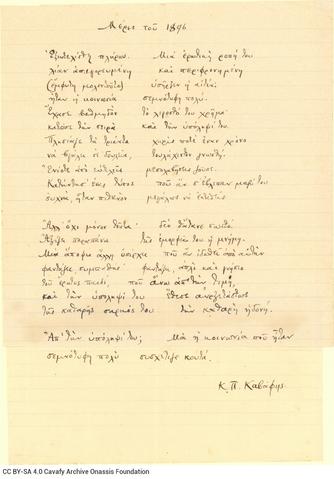 Μέρες τοῦ 1896
Ἐξευτελίσθη πλήρως. Μιά ἐρωτική ροπή του
λίαν ἀπαγορευμένη καί περιφρονημένη
(ἔμφυτη μολοντοῦτο) ὑπῆρξεν ἡ αἰτία:
ἦταν ἡ κοινωνία σεμνότυφη πολύ.
Ἔχασε βαθμηδόν τό λιγοστό του χρῆμα·
κατόπι τήν σειρά καί τήν ὑπόληψί του.
Πλησίαζε τά τριάντα χωρίς ποτέ ἕναν χρόνο
νά βγάλει σέ δουλειά, τουλάχιστον γνωστή.
Ἐνίοτε τά ἔξοδά του
Κατήντησ' ἕνας τύπος πού ἄν σ' ἔβλεπαν μαζύ του
συχνά, ἦταν πιθανόν μεγάλως νά ἐκτεθεῖς.
Ἀλλ' ὄχι μόνον τοῦτα· δέν θἄτανε σωστό.
Ἀξίζει παραπάνω τῆς ἐμορφιᾶς του ἡ μνήμη.
Μιά ἄποψις ἄλλη ὑπάρχει πού ἄν ἰδωθεῖ ἀπό αὐτήν
φαντάζει συμπαθής· φαντάζει, ἁπλό καί γνήσιο
τοῦ ἔρωτος παιδί, πού ἄνω ἀπ' τήν τιμή,
καί τήν ὑπόληψί του ἔθεσε ἀνεξετάστως
τῆς καθαρῆς σαρκός του τήν καθαρή ἡδονή.
Ἀπ' τήν ὑπόληψί του; Μά ἡ κοινωνία πού ἦταν
σεμνότυφη πολύ συσχέτιζε κουτά.
Κ. Π. Καβάφης
CC BY-SA 4.0 Cavafy Archive Onassis Foundation